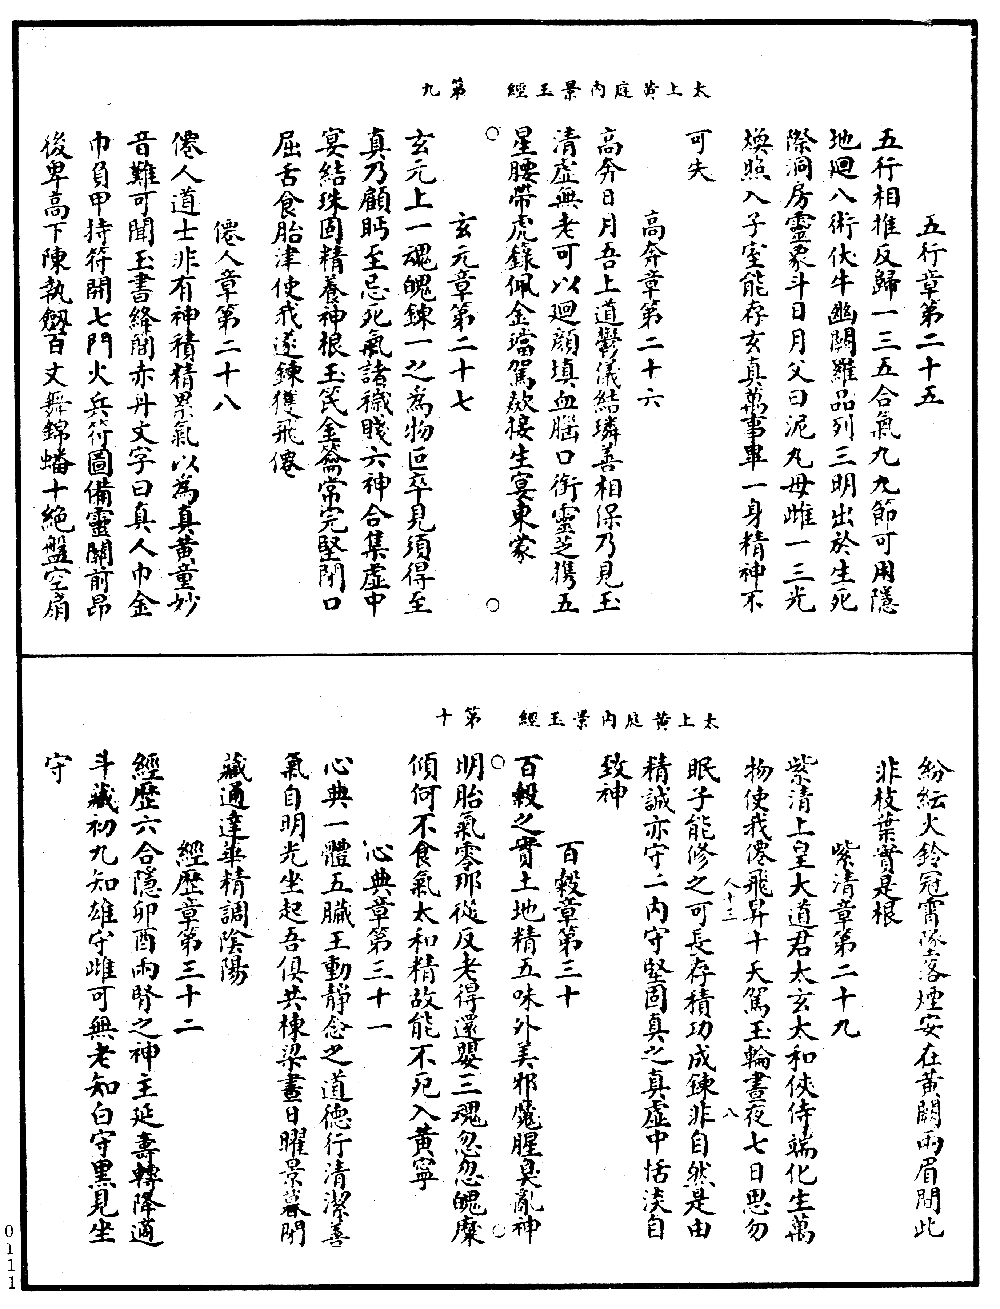 太上黄庭内景玉經　第九
五行章第二十五
五行相推反歸一三五合氣九九節可用隱
地迴八術伏牛幽闕羅品列三明出於生死
際洞房靈象斗日月父曰泥丸母雌一三光
煥照入子室能存玄真萬事畢一身精神不
可失
高奔章第二十六
高奔日月吾上道鬱儀結璘善相保乃見玉
清虛無老可以迴顏填血腦口銜靈芝携五
星腰帶虎籙佩金璫駕欻接生宴東蒙
玄元章第二十七
玄元上一魂魄鍊一之為物叵卒見須得至
真乃顧眄至忌死氣諸穢賤六神合集虛中
宴結珠固精養神根玉笢金籥常完堅閉口
屈舌食胎津使我遂鍊獲飛僊
僊人章第二十八
僊人道士非有神積精累氣以為真黄童妙
音難可聞玉書絳簡赤丹文字曰真人巾金
巾負甲持符開七門火兵符圖備靈關前昂
後卑高下陳執劔百丈舞錦幡十絶盤空扇
太上黄庭内景玉經　第十
紛紜火鈴冠霄隊落煙安在黄闕兩眉間此
非枝葉實是根
紫清章第二十九
紫清上皇大道君太玄太和俠侍端化生萬
物使我僊飛昇十天駕玉輪晝夜七日思勿
眠子能修之可長存積功成鍊非自然是由
精誠亦守一内守堅固真之真虛中恬淡自
致神
百穀章第三十
百穀之實土地精五味外美邪魔腥臭亂神
明胎氣零那從反老得還嬰三魂忽忽魄糜
傾何不食氣太和精故能不死入黄寧
心典章第三十一
心典一體五臟王動靜念之道德行清潔善
氣自明光坐起吾俱共棟梁晝日曜景暮閉
藏通達華精調陰陽
經歷章第三十二
經歷六合隱卯酉兩腎之神主延壽轉降適
斗藏初九知雄守雌可無老知白守黑見坐
守
八十三
八
0111